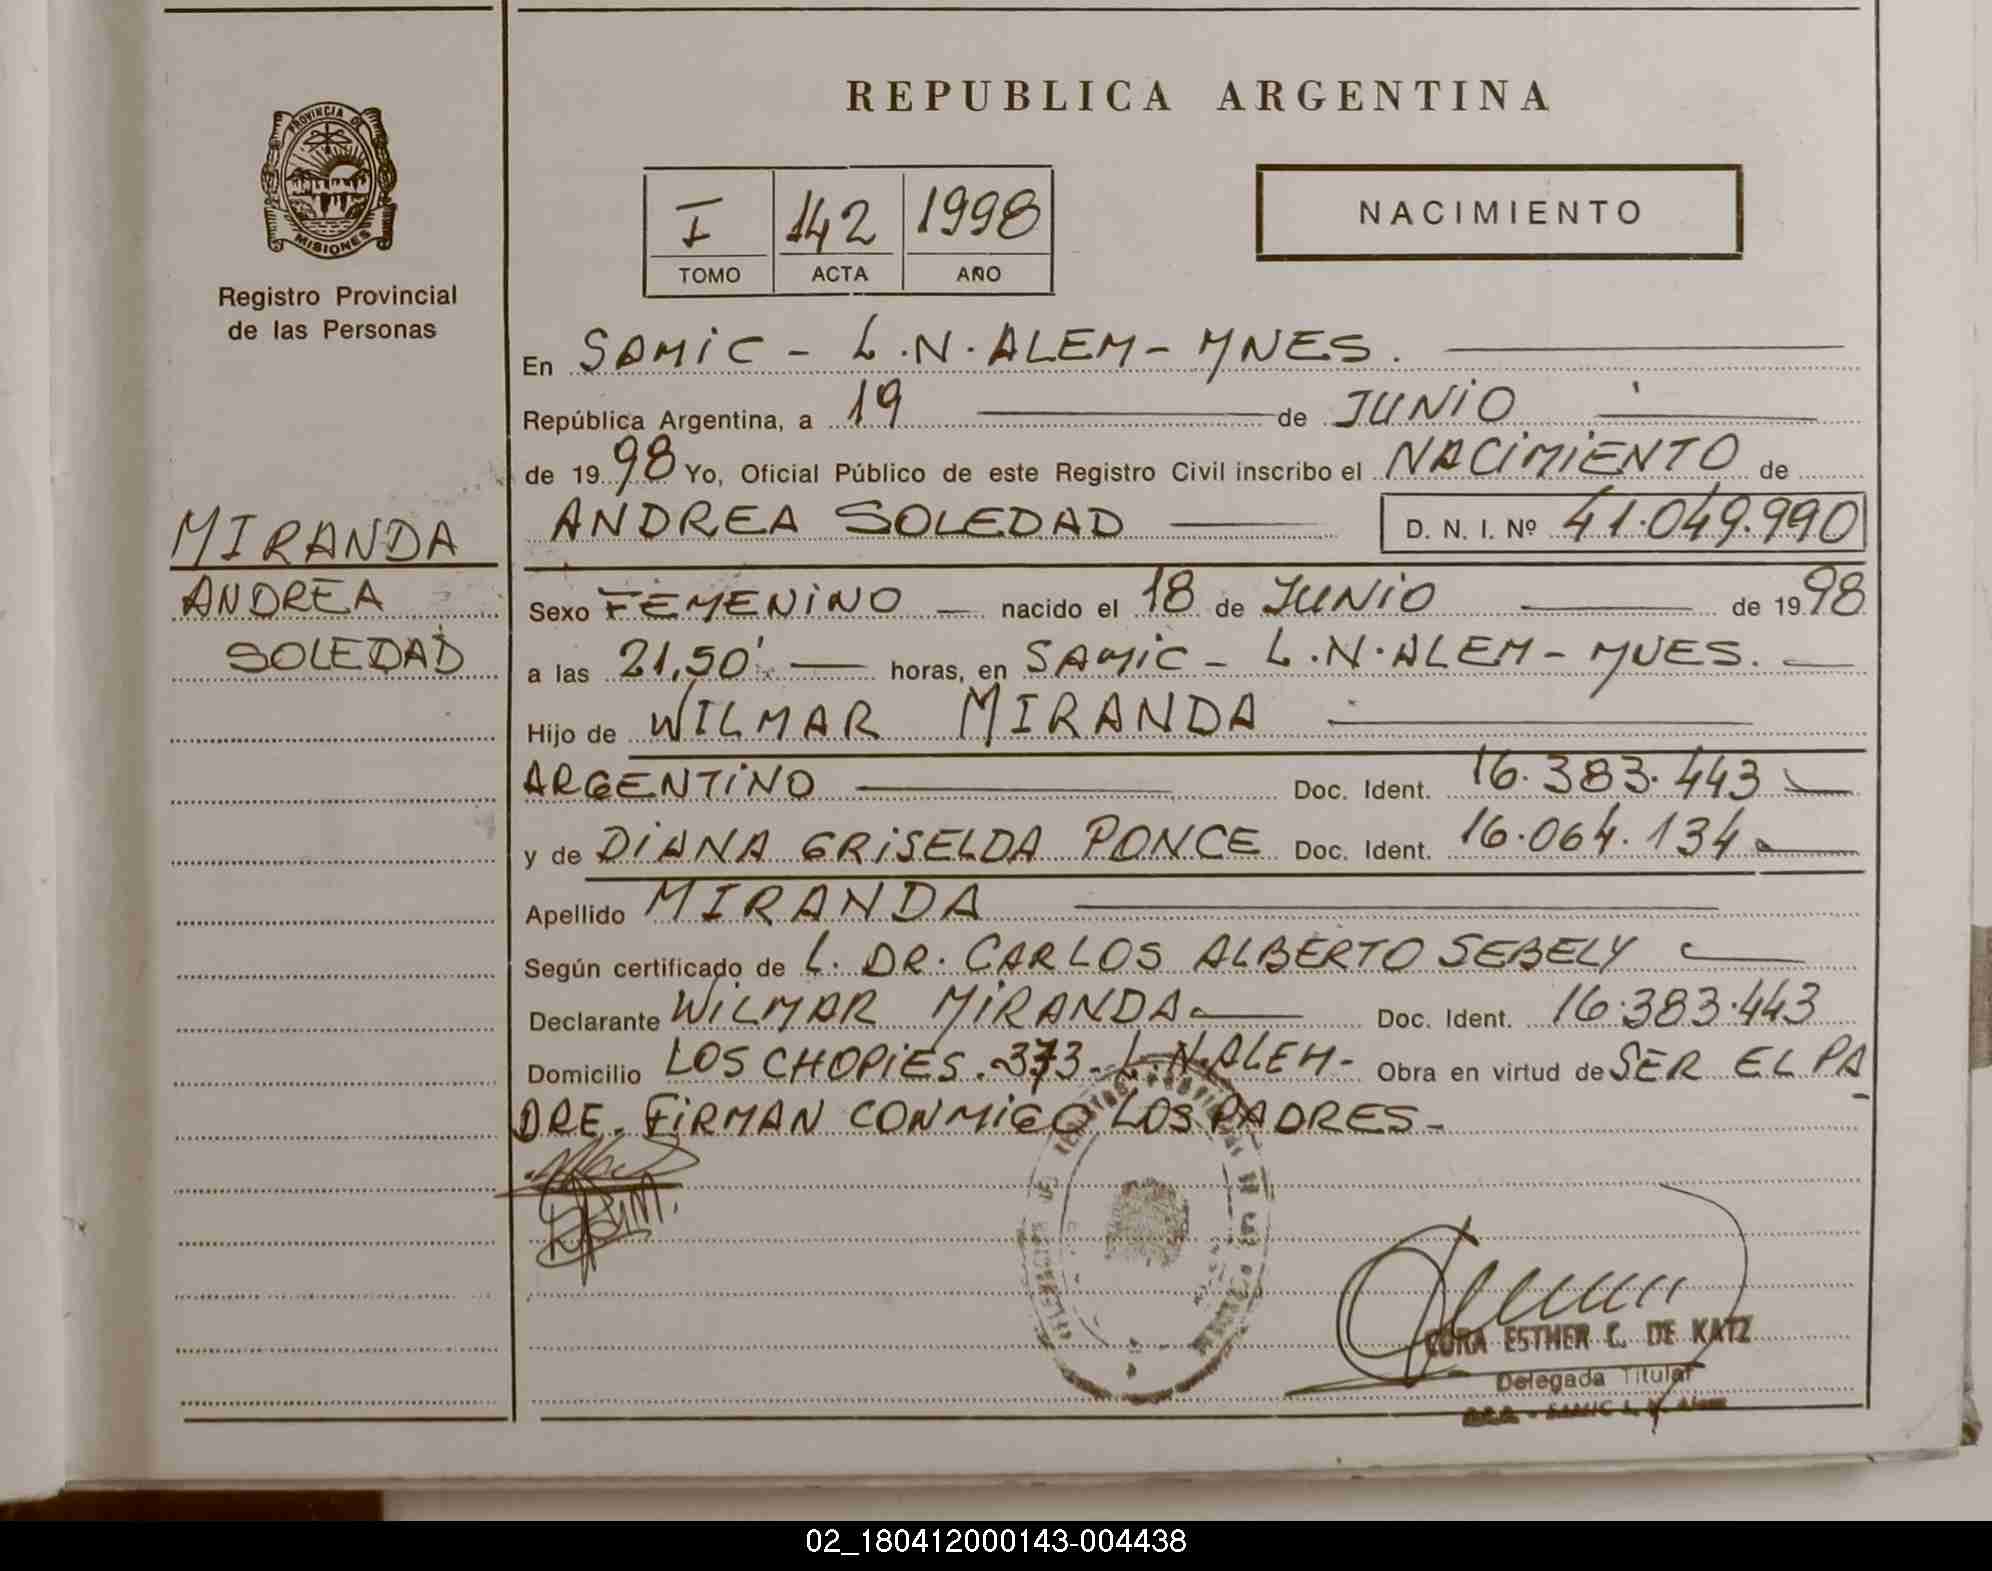 REPUBLICA ARGENTINA
PROVINCIA DE
MISIONES
Registro Provincial
de las Personas
I 142 1998
TOMO ACTA AÑO
NACIMIENTO
MIRANDA
ANDREA
SOLEDAD
En SAMIC - L.N. ALEM - MNES.
República Argentina, a 19 de JUNIO
de 1998 Yo, Oficial Público de este Registro Civil inscribo el NACIMIENTO de
ANDREA SOLEDAD D. N. I. Nº 41.049.990
Sexo FEMENINO nacido el 18 de JUNIO de 1998
a las 21,50' horas, en SAMIC - L.N. ALEM - MNES.
Hijo de WILMAR MIRANDA
ARGENTINO Doc. Ident. 16.383.443
y de DIANA GRISELDA PONCE Doc. Ident. 16.064.134
Apellido MIRANDA
Según certificado de L. DR. CARLOS ALBERTO SEBELY
Declarante WILMAR MIRANDA Doc. Ident. 16.383.443
Domicilio LOS CHOPIES. 373 - L.N. ALEM - Obra en virtud de SER EL PA
DRE. FIRMAN CONMIGO LOS PADRES -
CORA ESTHER C. DE KATZ
Delegada Titular
02_180412000143-004438